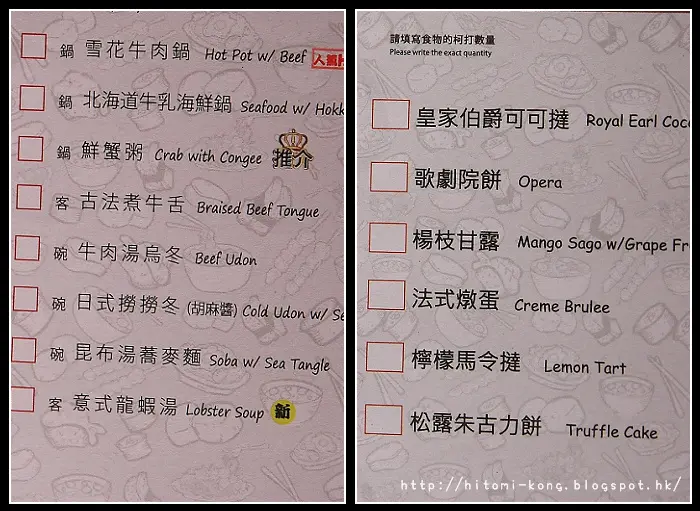 鍋 雪花牛肉鍋 Hot Pot w/ Beef 人氣
鍋 北海道牛乳海鮮鍋 Seafood w/ Hokk
鍋 鮮蟹粥 Crab with Congee 推介
客 古法煮牛舌 Braised Beef Tongue
碗 牛肉湯烏冬 Beef Udon
碗 日式撈撈冬 (胡麻醬) Cold Udon w/ Se
碗 昆布湯蕎麥麵 Soba w/ Sea Tangle
客 意式龍蝦湯 Lobster Soup 新
請填寫食物的柯打數量
Please write the exact quantity
皇家伯爵可可撻 Royal Earl Coco
歌劇院餅 Opera
楊枝甘露 Mango Sago w/Grape Fr
法式燉蛋 Creme Brulee
檸檬馬令撻 Lemon Tart
松露朱古力餅 Truffle Cake
http://hitomi-kong.blogspot.hk/